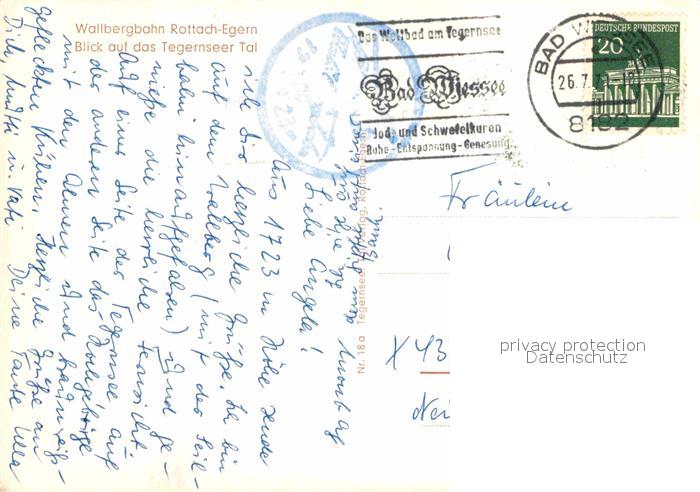 Wallbergbahn Rottach-Egern
Blick auf das Tegernseer Tal
Das Weltbad am Tegernsee
Bad Wiessee
Jod- und Schwefelkuren
Ruhe-Entspannung-Genesung
BAD WIESSEE
26.7.7
8182
20 DEUTSCHE BUNDESPOST
Liebe Angela!
Aus 1723 m Höhe sende
ich Dir herzliche Grüße. Ich bin
auf dem Wallberg (mit der Seil-
bahn hinaufgefahren) und ge-
nieße die herrliche Fernsicht.
Auf einer Seite der Tegernsee auf
der anderen Seite das Hochgebirge
mit den Almen und braunweiß-
gefleckten Kühen. Herzliche Grüße an
Dich, Mutti u. Vati Deine Tante
Nr. 18a Tegernsee
Rottach-Egern
Fräulein
X 43
privacy protection
Datenschutz